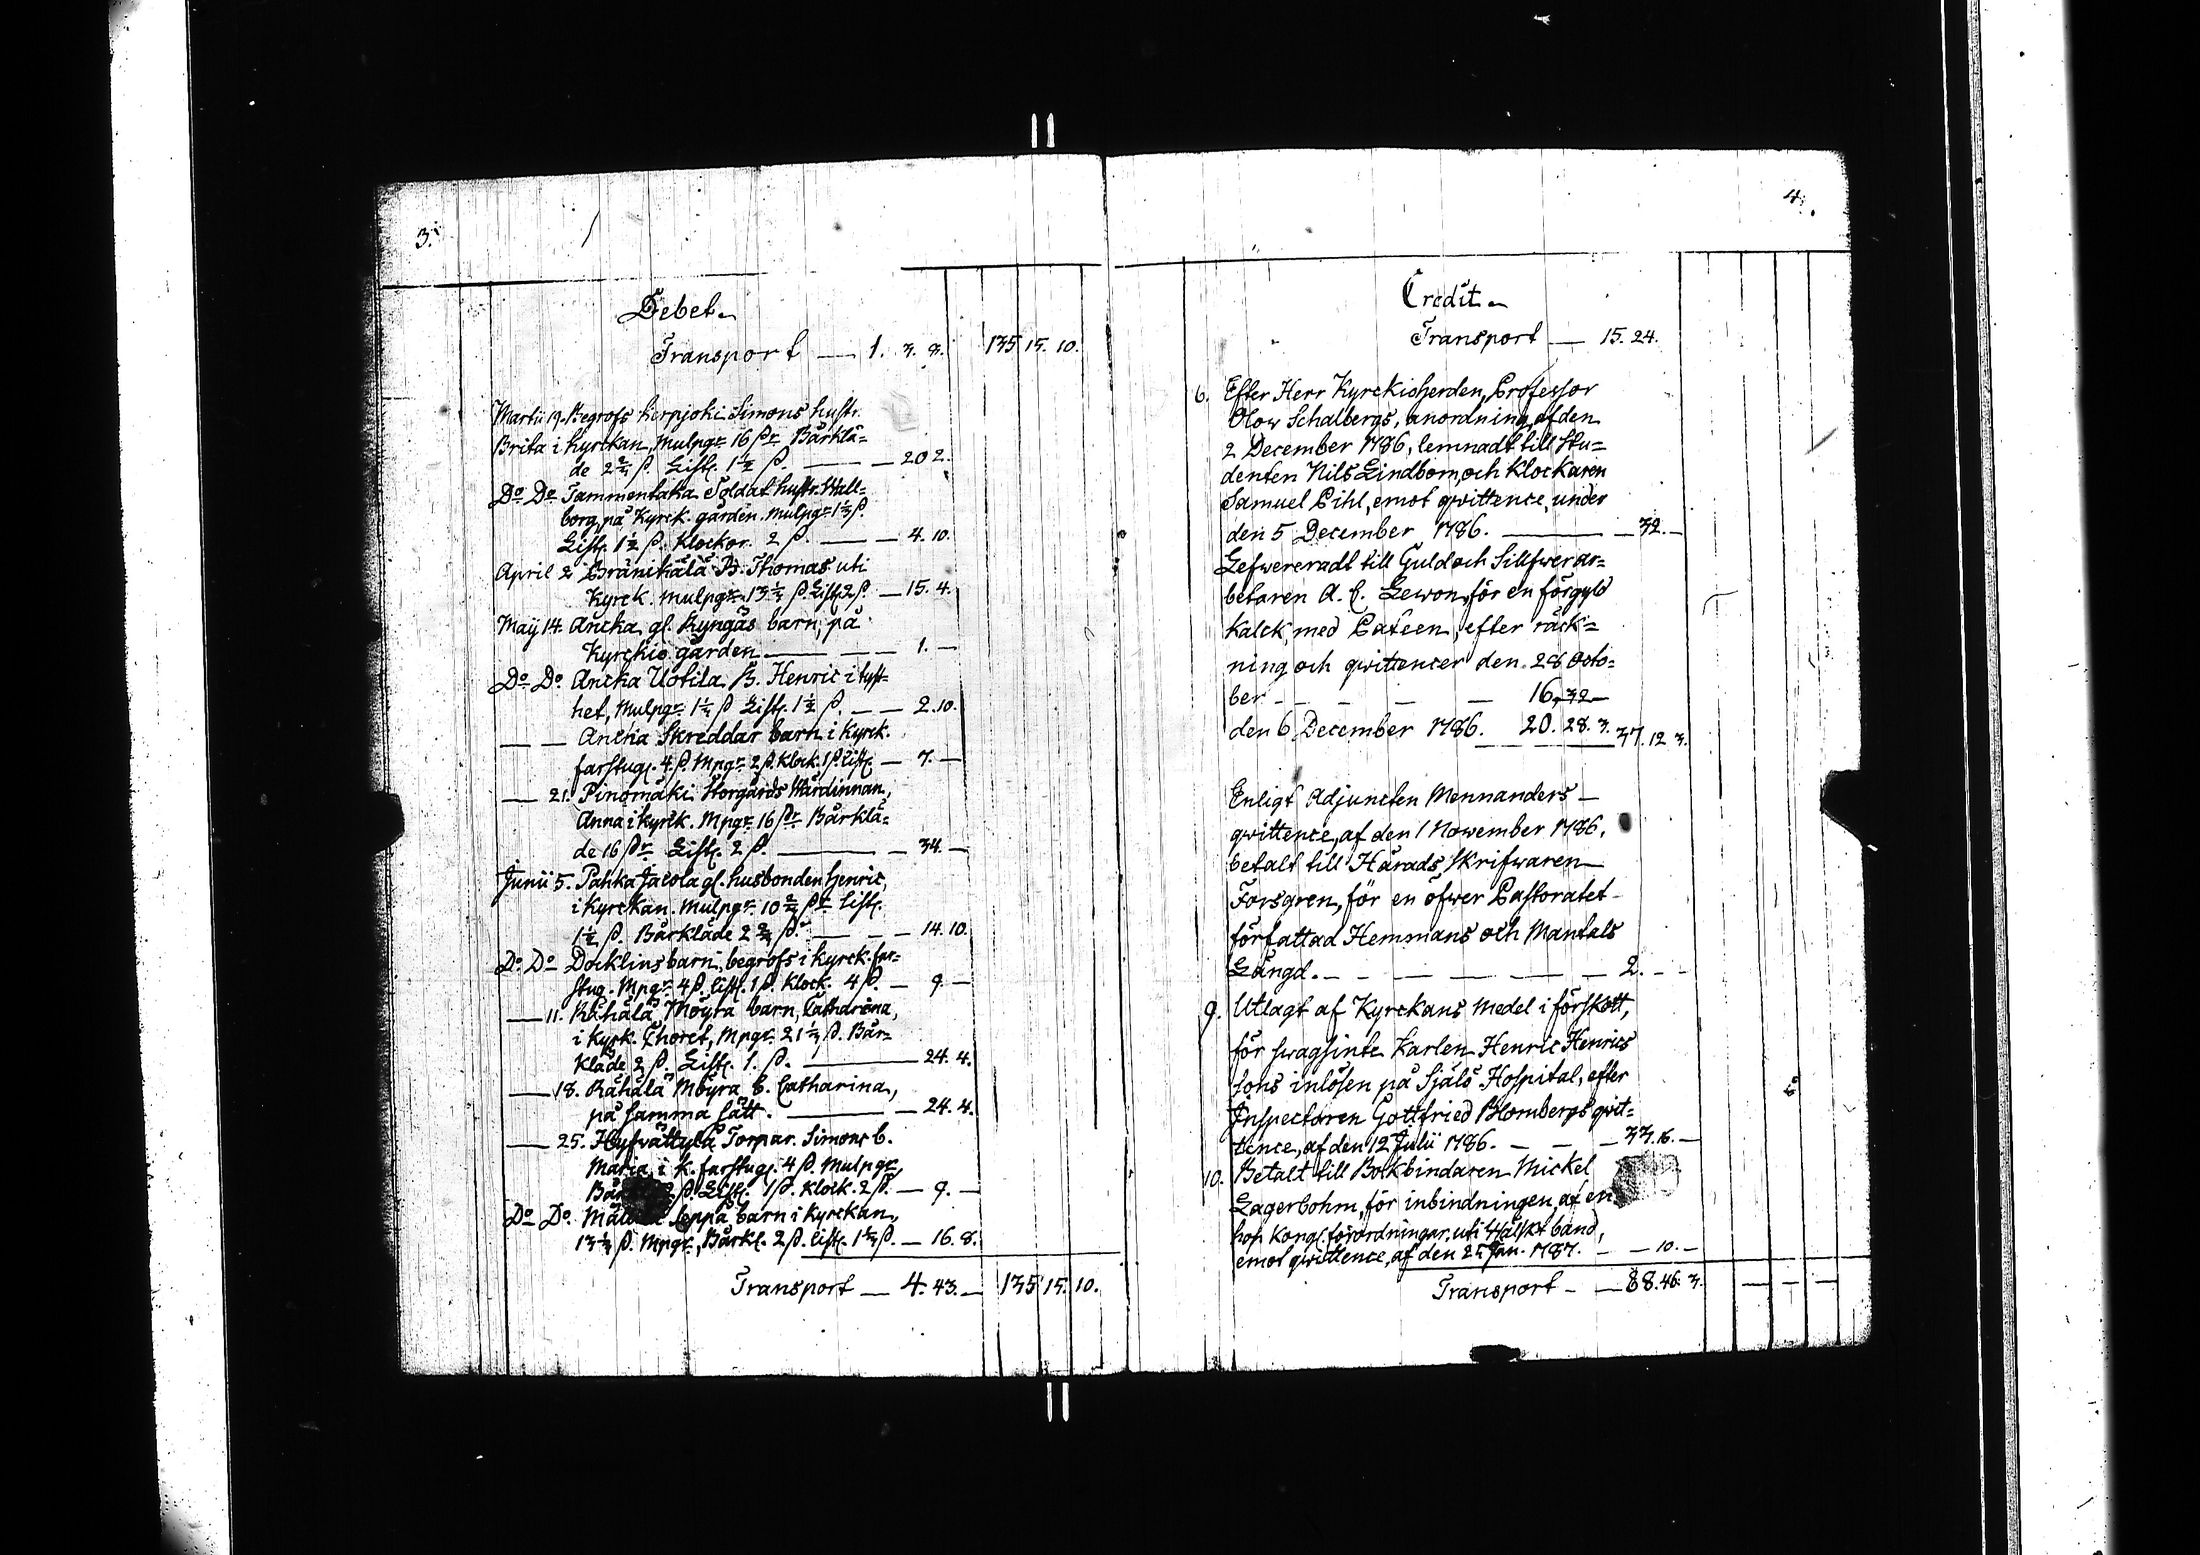 3.
Debet.
Transport — 1. 3. 8. 135 15. 10.
Martii 19. Begrofs Kerpjoki Simons hustr.
Brita i Kyrckan, Mulpgr 16 ßr Bårklä-
de 2 2/4 ß. Liksf. 1 1/2 ß. — — 20 2.
Do Do Tammentaka Soldat hustr. Wall-
borg, på Kyrck. gården. Mulpgr 1 1/3 ß.
1 1/2 ß. Klockor. 2 ß. — — 4. 10.
April 2 Bränikälä B. Thomas uti
Kyrck. Mulpgr 13 1/3 ß. 2 ß. — 15. 4.
Maij 14. Ancka gl. Ryngäs barn, på
Kyrckio gården — — — 1. —
Do Do. Ancka Uotila B. Henric i
het, Mulpgr 1 1/3 ß 1 1/2 ß. — — 2. 10.
— — Ancka Skreddar barn i Kyrck.
farstug. 4 ß. Mpgr 2 ß. Klock. 1 ß — 7. —
— 21. Pinomäki Storgårds Wärdinnan,
Anna i Kyrck. Mpgr 16 ßr Bårklä-
de 16 ßr 2 ß. — — 34. —
Junii 5. Pahka Jacola gl. husbonden Henric,
i Kyrckan. Mulpgr 10 2/3 ßr
1 1/2 ß. Bårkläde 2 2/3 ß. — — — 14. 10.
Do Do Docklins barn, begrofs i Kyrck. far-
stug. Mpgr 4 ß. 1 ß. Klock. 4 ß. — 9 —
— 11. Rähälä Möyrä barn, Catharina,
i Kyrk. Choret, Mpgr 21 1/3 ß. Bår-
kläde 2 ß. 1. ß. — 24. 4.
— 18. Rähälä Möyrä b. Catharina,
på samma sätt. — — 24. 4.
— 25. Torpar. Simons b.
Maria, i k. farstug. 4 ß. Mulpgr,
ß. 1 ß. Klock. 2 ß. — 9. —
Do Do. Seppä barn i Kyrckan,
13 1/3 ß. Mpgr, Bårkl. 2 ß. 1 1/3 ß. — 16. 8.
Transport — 4. 43. — 135 15. 10.
4.
Credit.
Transport — 15. 24.
6. Efter Herr Kyrckioherden, Professor
Olow Schalbergs, anordning, af den
2 December 1786, lemnadt till Stu-
denten Nils Lindbom, och Klockaren
Samuel Pihl, emot qvittence, under
den 5 December 1786. — — 32. —
Lefwereradt till Guld och Silfwerar-
betaren A. C. Lewon, för en förgyld
Kalck, med Pateen, efter räck-
ning och qvittencer den 28 Octo-
ber - - - — — 16. 32 —
den 6 December 1786. 20. 28. 3. 37. 12 3.
Enligt Adjuncten Mennanders —
qvittence, af den 1 November 1786,
betalt till Härads Skrifwaren
Forsgren, för en öfwer Pastoratet
författad Hemmans och Mantals
Längd. - - — — — — 2. - -
9. Utlagt af Kyrckans Medel i förskott,
för swagsinte Karlen Henric Henrics
sons inlösen på Själö Hospital, efter
Inspectoren Gottfried Blombergs qvit-
tence, af den 12 Julii 1786. — — — 33. 16. —
10. Betalt till Bokbindaren Mickel
Lagerbohm, för inbindningen, af en
hop Kongl. förordningar, uti Hälfkt band,
emot qvittence, af den 25 Jan. 1787. — — 10. —
Transport - — 88. 46. 3. — — —